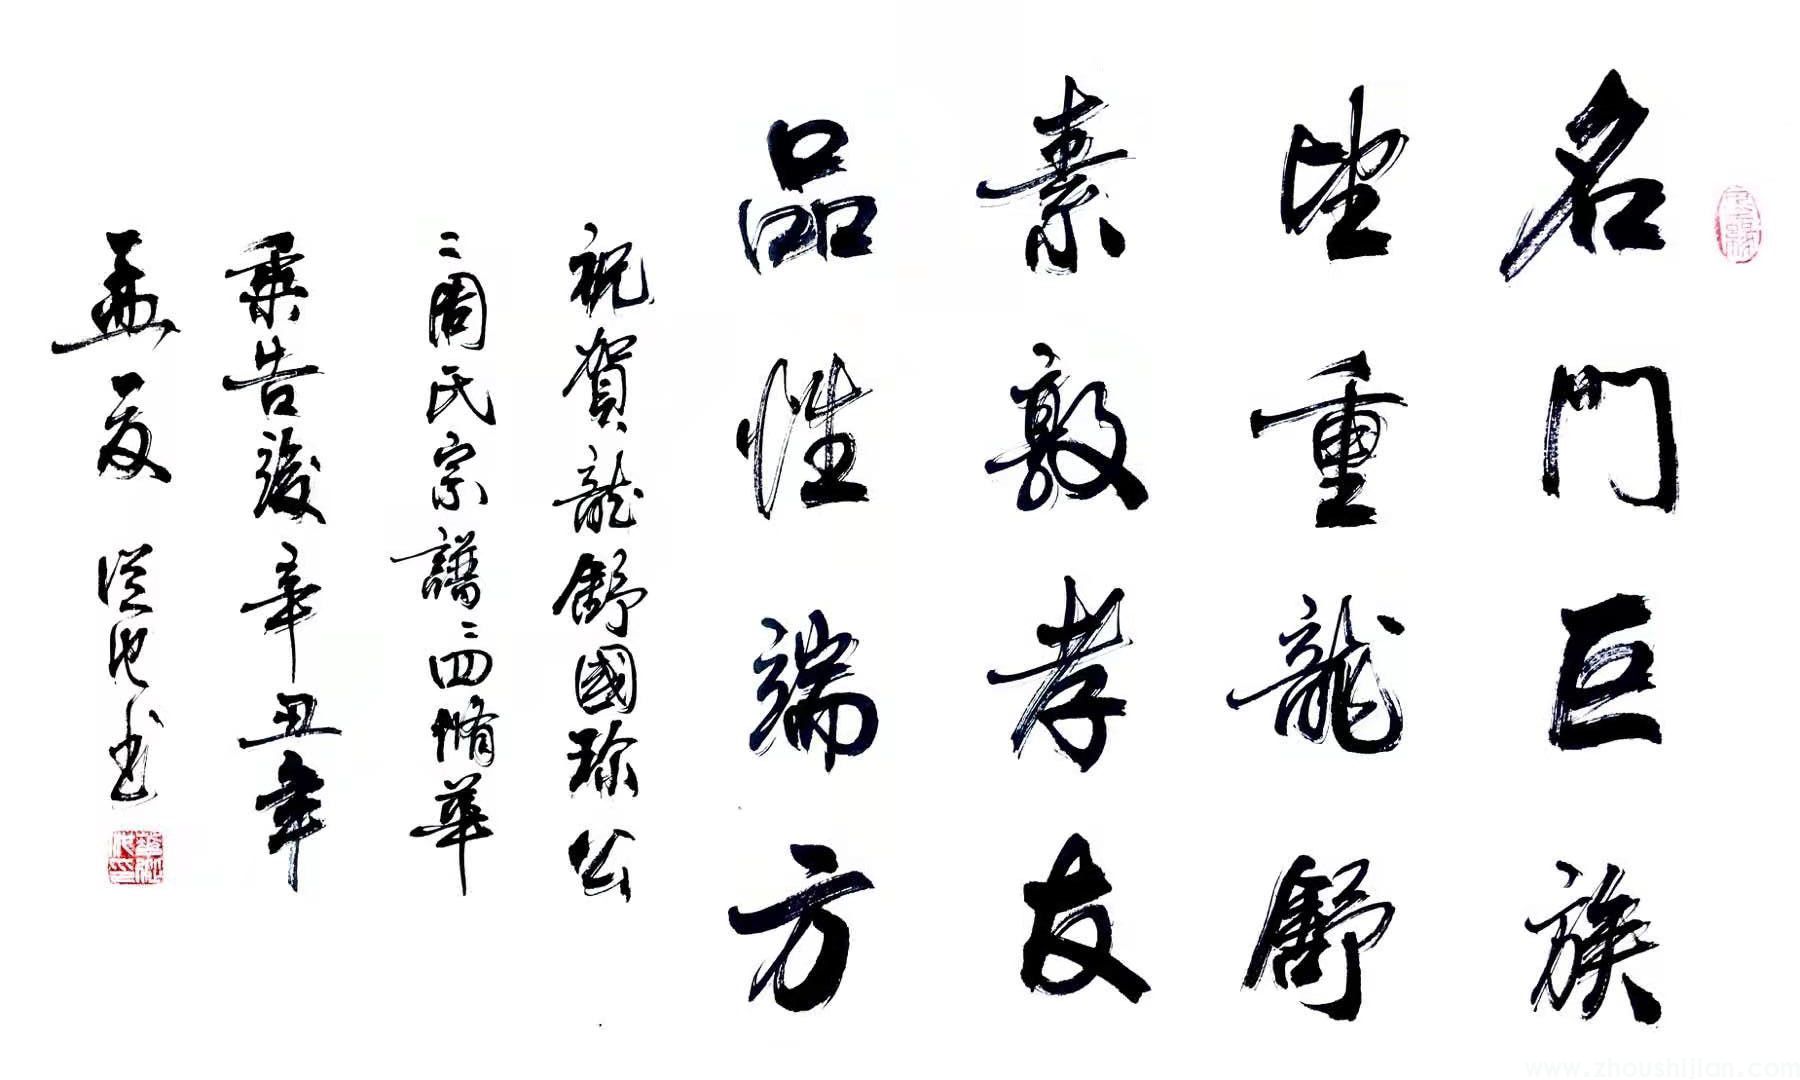 名門巨族
望重龍舒
素敦孝友
品性端方
祝賀龍舒國珍公
之周氏宗譜之四脩華
乘告竣辛丑年
孟夏 從池書
www.zhoushijian.com